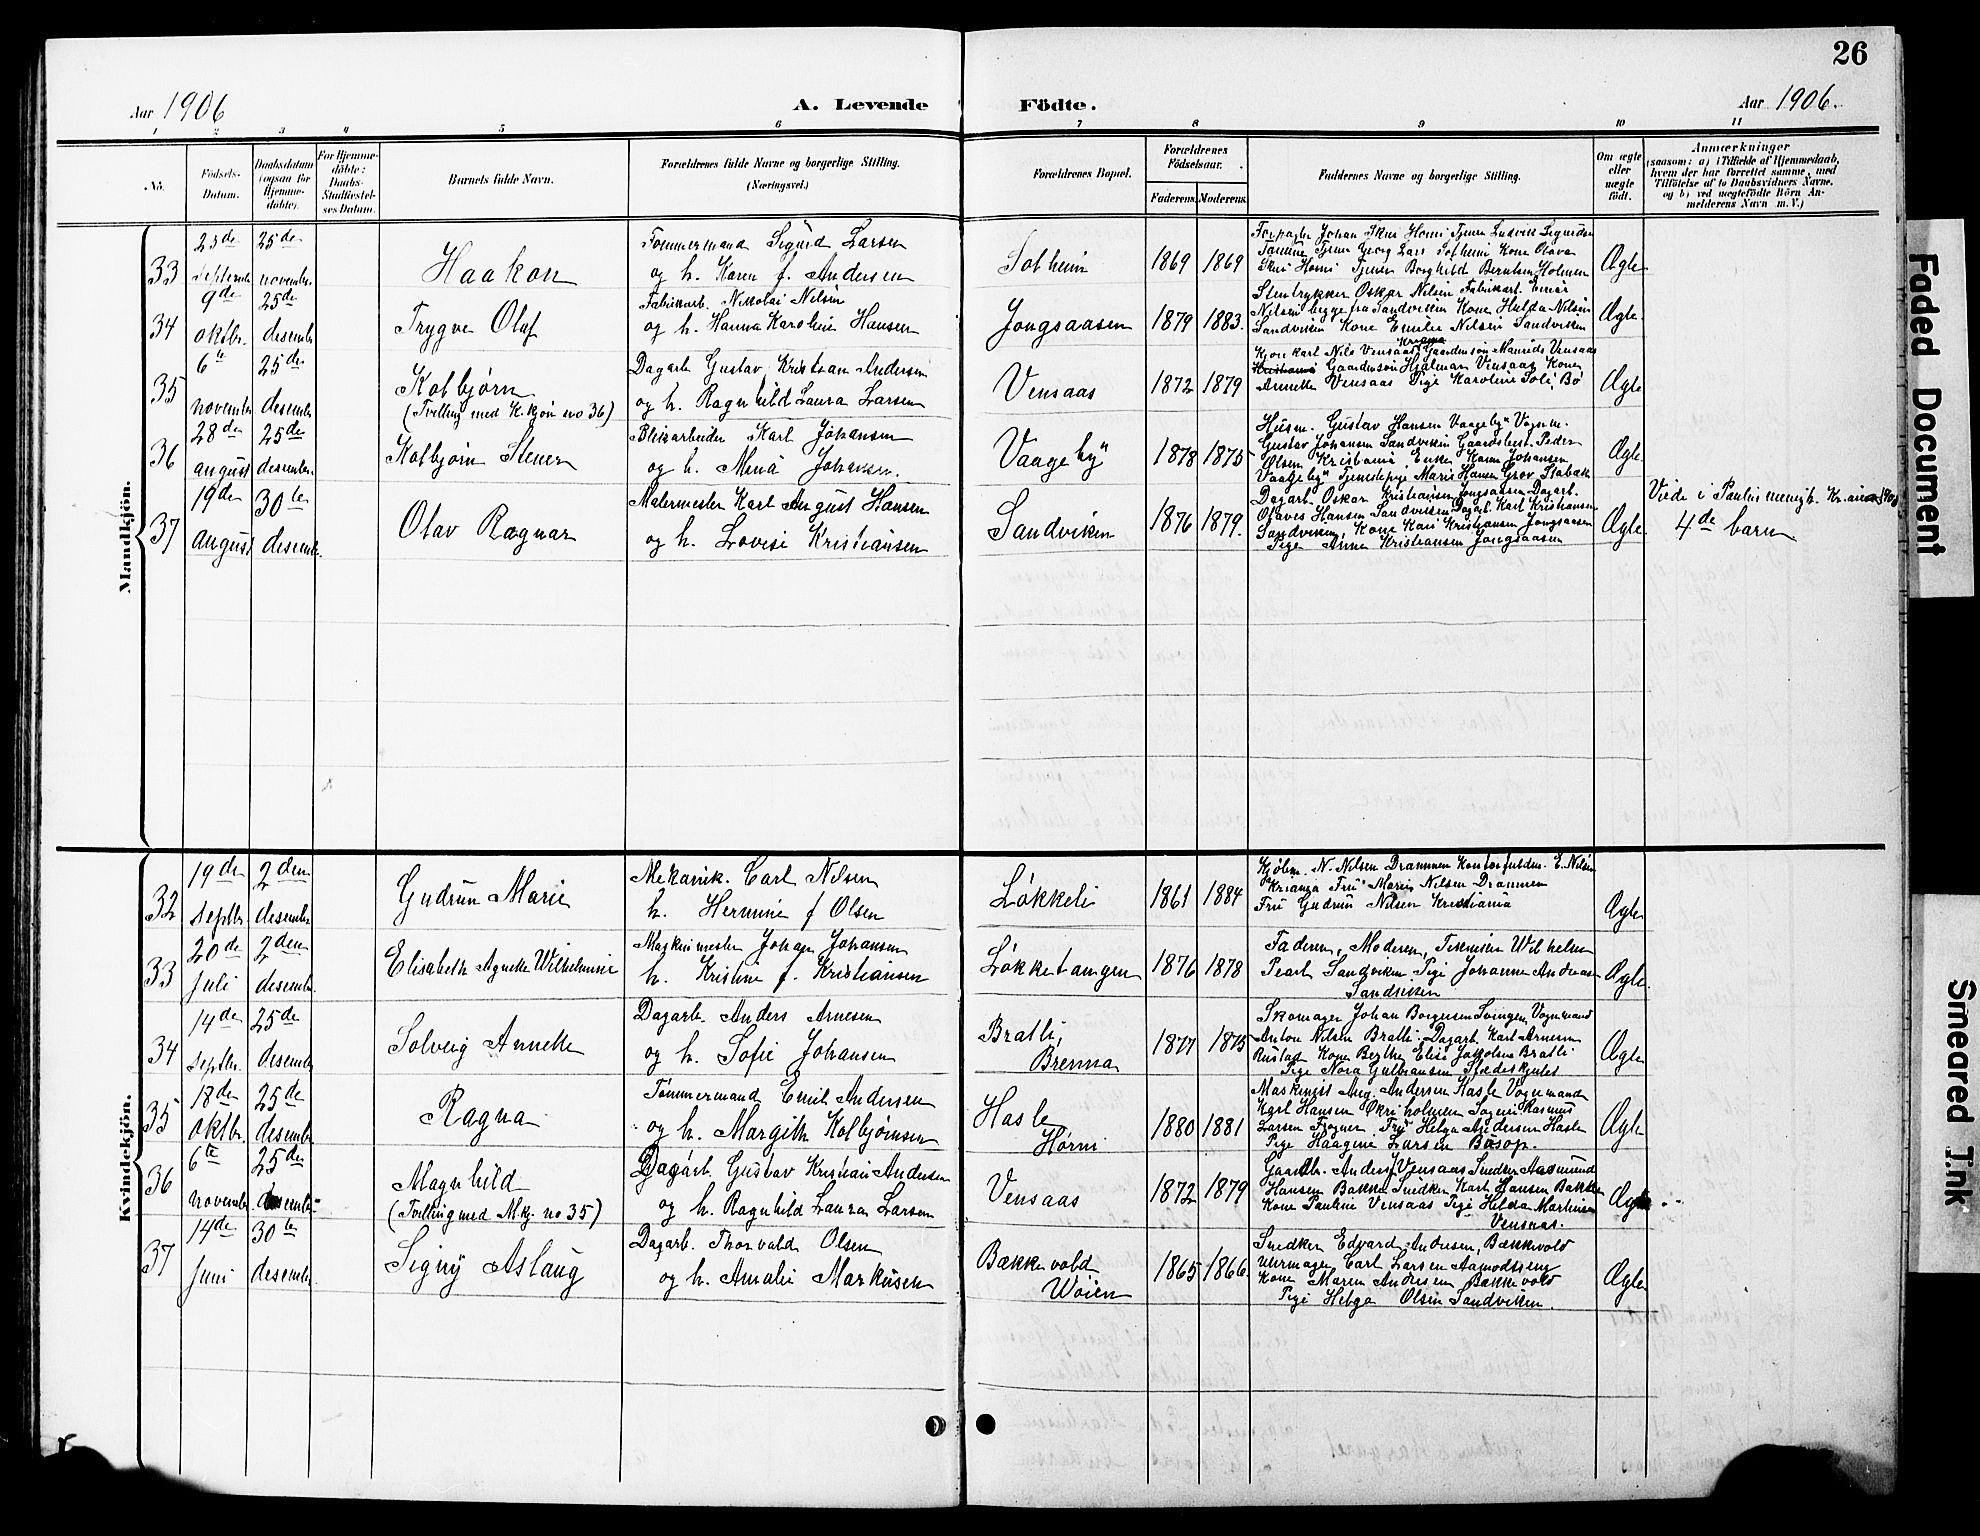 26
Aar 1906
A. Levende
Födte.
Aar 1906.
1 2 3 4 5 6 7 8 9 10 11
No.
Födsels-
Datum.
Daabsdatum
(ogsaa for
Hjemme-
døbte).
For Hjemme-
döbte:
Daabs-
Stadfæstel-
ses Datum.
Barnets fulde Navn.
Forældrenes fulde Navne og borgerlige Stilling.
(Næringsvei.)
Forældrenes Bopæl.
Forældrenes
Födselsaar.
Faderens.
Moderens.
Faddernes Navne og borgerlige Stilling.
Om ægte
eller
uægte
født.
Anmærkninger
(saasom: a) i Tilfælde af Hjemmedaab,
hvem der har forrettet samme, med
Tilföielse af to Daabsvidners Navne,
og b) ved uægtefödte Börn An-
melderens Navn m. V.)
Mandkjön.
33
23de
septembr
25de
november
Haakon
Tømmermand Sigurd Larsen
og h. Karen f. Andersen
Solheim
1869
1869
Forpagter Johan Skui Horni Tjener Ludvik Sigurdsen
Tanum Tjener Georg Lars Solheim Kone Olava
Skui Horni Tjener Borghild Berntsen Holmen
Ægte
34
9de
oktbr.
25de
desembr
Trygve Olaf
Fabrikarb. Nikolai Nilsen
og h. Hanna Karoline Hansen
Jongsaasen
1879
1883.
Stentrykker Oskar Nilsen Fabrikarb. Einar
Nilsen begge fra Sandviken Kone Hulda Nilsen
Sandviken Kone Emilie Nilsen Sandviken
Ægte.
35
6te
november
25de
desember
Kolbjørn
(Tvilling med K.kjøn no 36)
Dagarb Gustav Kristian Andersen
og h. Ragnhild Laura Larsen
Vensaas
1872
1879
Krania
Kjørekarl Nils Vensaas Gaardmsøn Maurids Vensaas
Kristiania Gaardmsøn Hjalmar Vensaas Kone
Annette Vensaas Pige Karoline Solli Bø
Ægte
36
28de
august
25de
desember.
Kolbjørn Stener
Blikarbeider Karl Johansen
og h. Mina Johansen.
Vaageby"
1878
1875
Husm. Gustav Hansen Vaageby" Vognm.
Gustav Johansen Sandviken Gaardsbest. Peder
Olsen Kristiania, Enke Karen Johansen
Vaageby" Tjenestepige Marie Hansen Grav Stabæk
Ægte.
37
19de
august
30te
desembr.
Olav Ragnar
Malermester Karl August Hansen
og h. Lovise Kristiansen
Sandviken
1876
1879.
Dagarb. Oskar Kristiansen Jongsaasen Dagarb.
Olaves Hansen Sandviken Dagarb. Karl Kristiansen
Sandviken, Kone Kari Kristiansen Jongsaasen
Pige Anna Kristiansen Jongsaasen
Ægte.
Viede i Paulus menigh.
4de barn
Kvindekjön.
32
19de
Septbr.
2den
desember
Gudrun Marie
Mekanik. Carl Nilsen
h. Hermine f Olsen
Løkkeli
1861
1884
Kjøbm. N. Nilsen Drammen Kontorfuldm. E. Nilsen
Krania Fru Marie Nilsen Drammen
Fru Gudrun Nilsen Kristiania
Ægte
33
20de
Juli
2den
desember.
Elisabeth Agnethe Wilhelmine
Maskinmester Johan Johansen
h. Kristine f. Kristiansen
Løkketangen
1876
1878
Faderen, Moderen, Tekniker Wilhelm
Pearl Sandviken Pige Johanne Andersen
Sandviken
Ægte.
34
14de
septbr.
25de
desember
Solveig Annette
Dagarb. Anders Arnesen
og h. Sofie Johansen
Bratli,
Brenna
1877
1875
Skomager Johan Borgersen Svingen Vognmand
Anton Nilsen Bratli, Dagarb. Karl Arnesen
Rustad Kone Berthe Elise Jakobine Bratli
Pige Nora Gulbransen
Ægte
35
18de
oktbr.
25de
desember
Ragna
Tømmermand Emil Andersen
og h. Margith Kolbjørnsen
Hasle
Horni
1880
1881
Maskinist Aug. Andersen Hasle Vognmand
Karl Hansen Økriholmen Rasmus
Larsen Frogner, Fru Helga Andersen Hasle
Pige Haagine Larsen Bøsop.
Ægte
36
6te
november
25de
desembr
Magnhild
(Tvilling med Mkj. no 35)
Dagarb. Gustav Kristian Andersen
og h. Ragnhild Laura Larsen
Vensaas
1872
1879
Gaardbr. Anders Vensaas Snedker Aasmund
Hansen Bakke Snedker Karl Hansen Bakke
Kone Pauline Vensaas Pige Hilda Martinsen
Vensaas.
Ægte
37
14de
Juni
30te
desember.
Signy Aslaug
Dagarb. Thorvald Olsen
og h. Amalie Markusen
Bækkevold
Wøien
1865
1866.
Snedker Edvard Andresen, Bækkevold
Uhrmager Carl Larsen Aamodtseng
Kone Maren Andresen Bækkevold
Pige Helga Olsen Sandviken.
Ægte
Faded Document
Smeared Ink